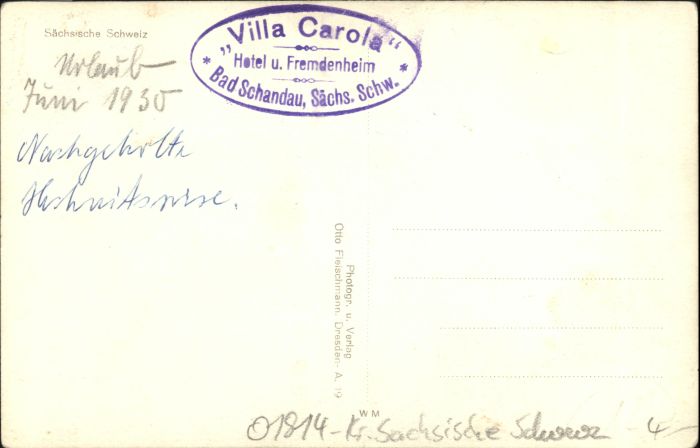 Sächsische Schweiz
Urlaub
Juni 1930
Nachgeholte
Hochzeitsreise.
„Villa Carola“
Hotel u. Fremdenheim
* Bad Schandau, Sächs. Schw. *
Photogr. u. Verlag
Otto Fleischmann. Dresden-A. 19
WM
01814-Kr. Sächsische Schweiz -4-